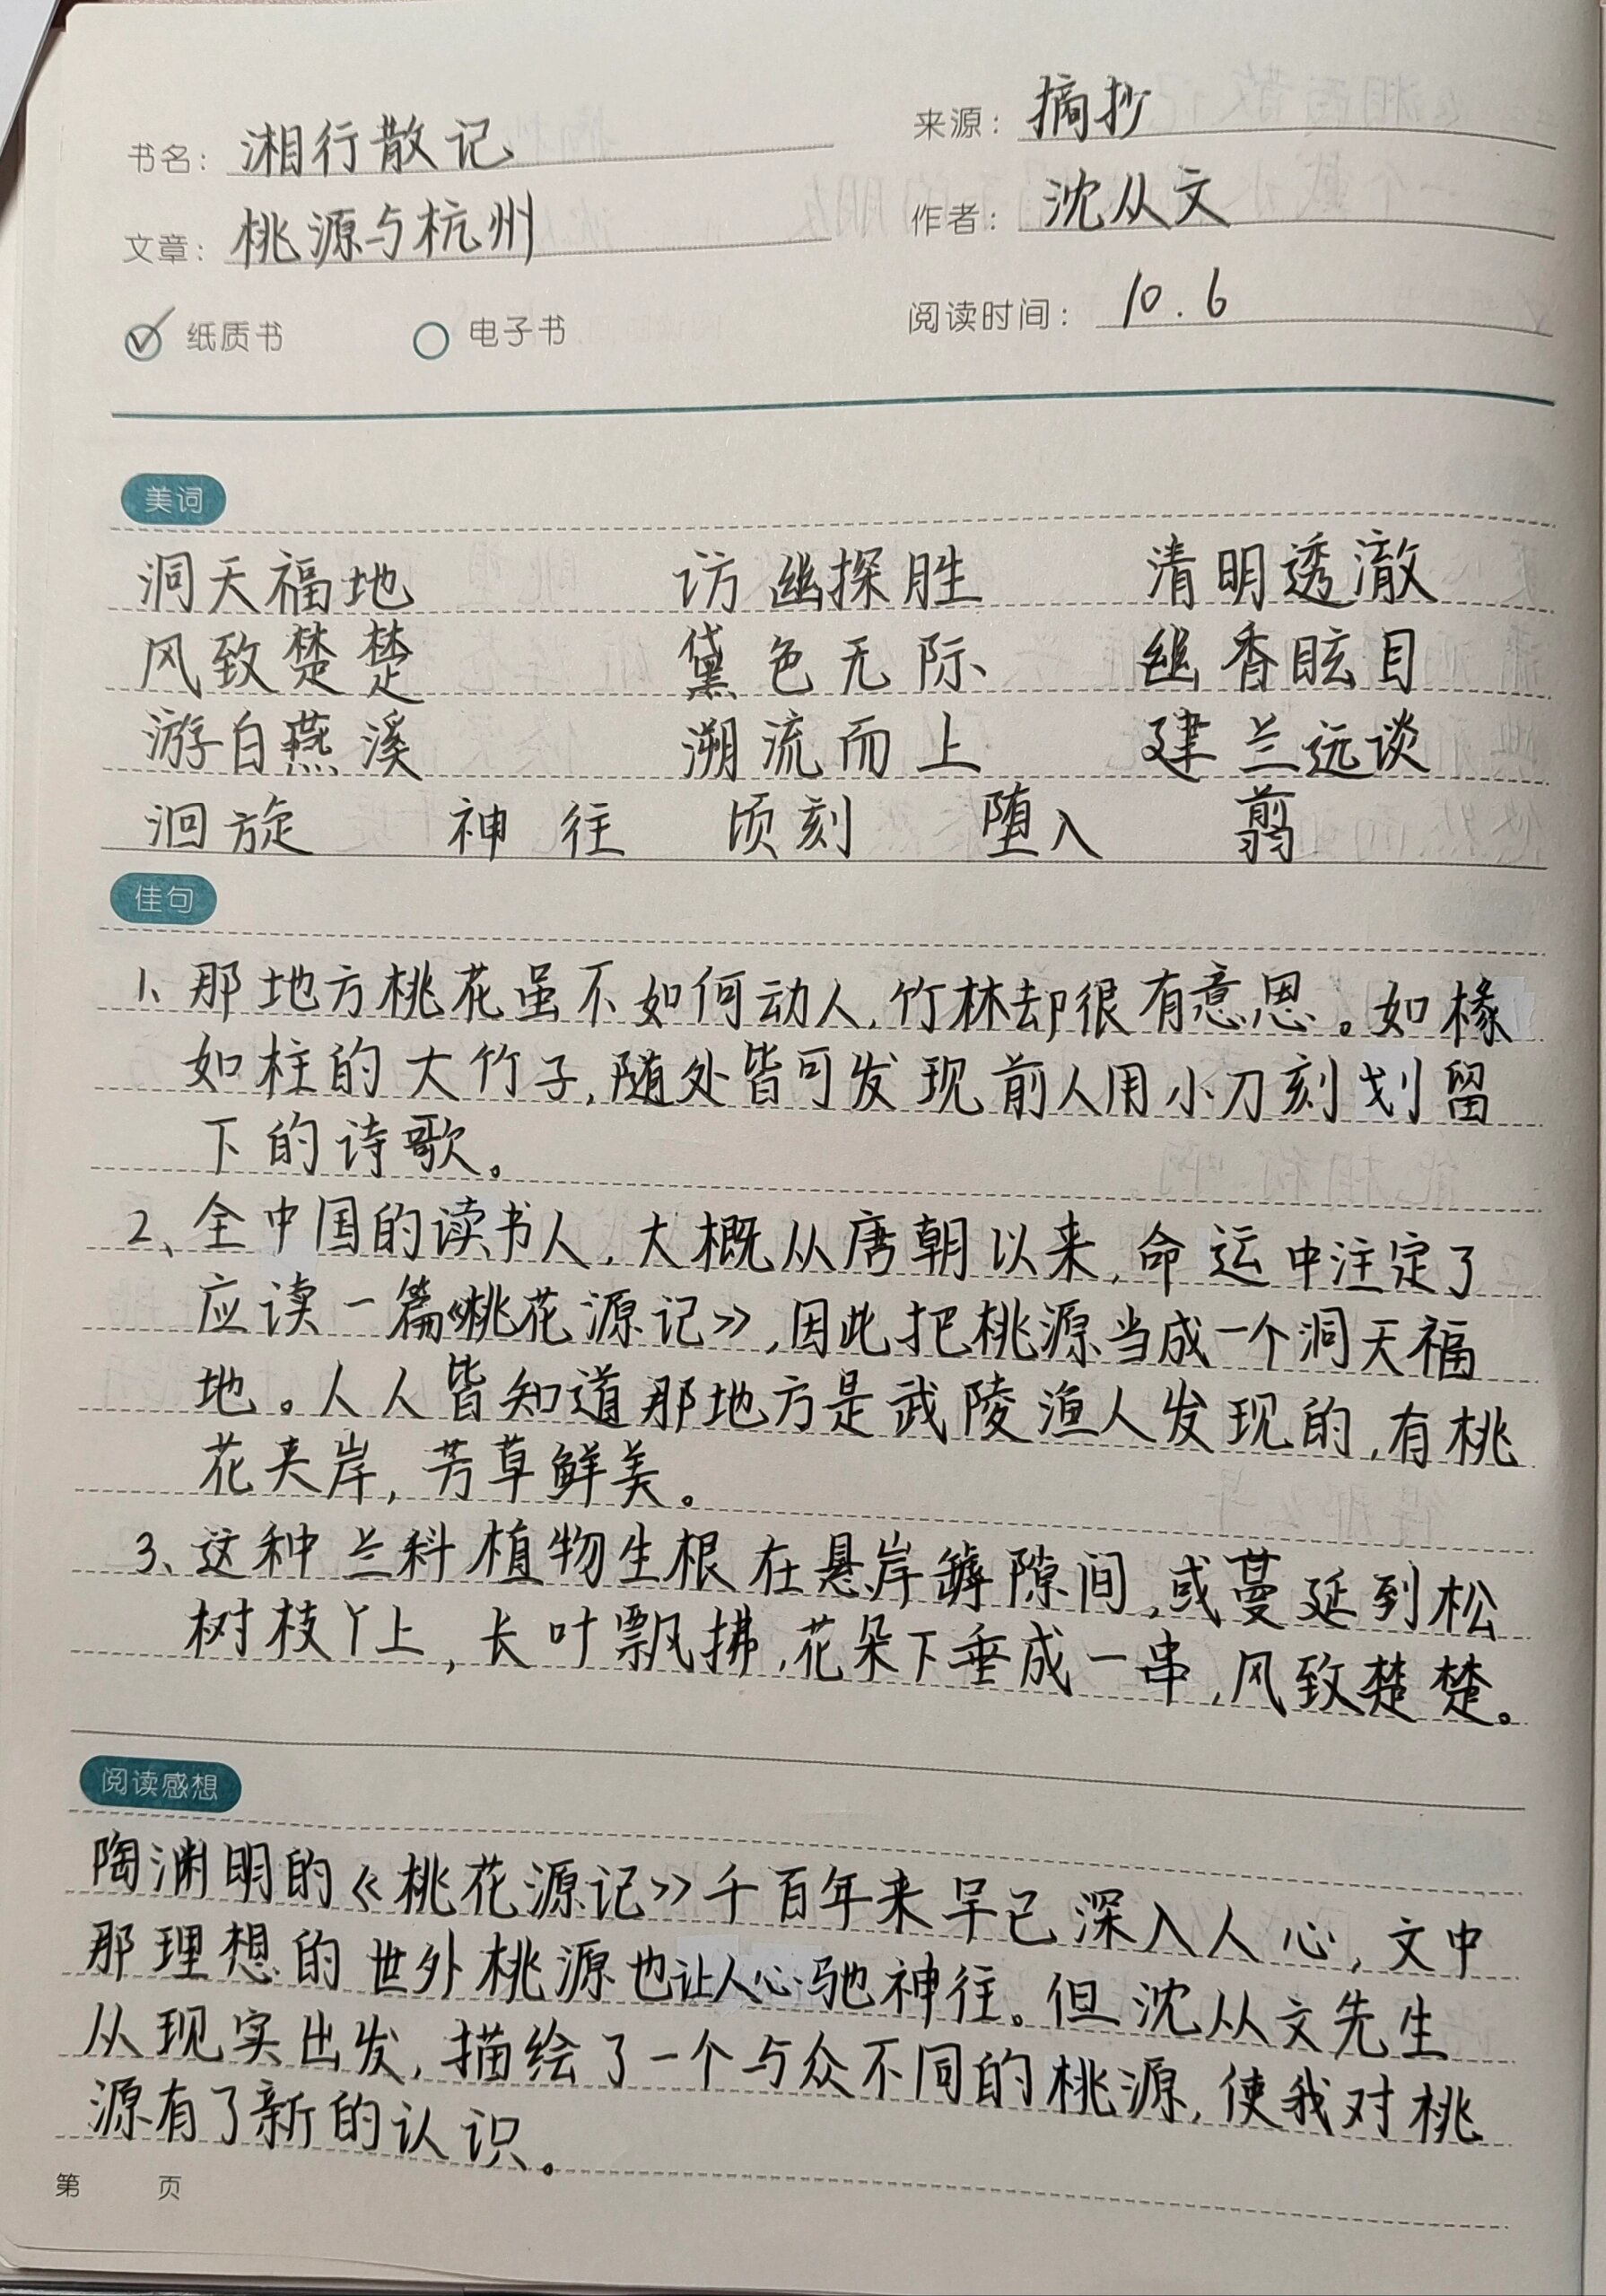 书名：湘行散记
来源：摘抄
文章：桃源与杭州
作者：沈从文
纸质书 电子书
阅读时间：10.6
美词
洞天福地 访幽探胜 清明透澈
风致楚楚 黛色无际 幽香眩目
游白燕溪 溯流而上 建兰远谈
洄旋 神往 顷刻 堕入 翦
佳句
1、那地方桃花虽不如何动人，竹林却很有意思。如椽
如柱的大竹子，随处皆可发现前人用小刀刻划留
下的诗歌。
2、全中国的读书人，大概从唐朝以来，命运中注定了
应读一篇《桃花源记》，因此把桃源当成一个洞天福
地。人人皆知道那地方是武陵渔人发现的，有桃
花夹岸，芳草鲜美。
3、这种兰科植物生根在悬岸罅隙间，或蔓延到松
树枝丫上，长叶飘拂，花朵下垂成一串，风致楚楚。
阅读感想
陶渊明的《桃花源记》千百年来早已深入人心，文中
那理想的世外桃源也让人心驰神往。但沈从文先生
从现实出发，描绘了一个与众不同的桃源，使我对桃
源有了新的认识。
第 页